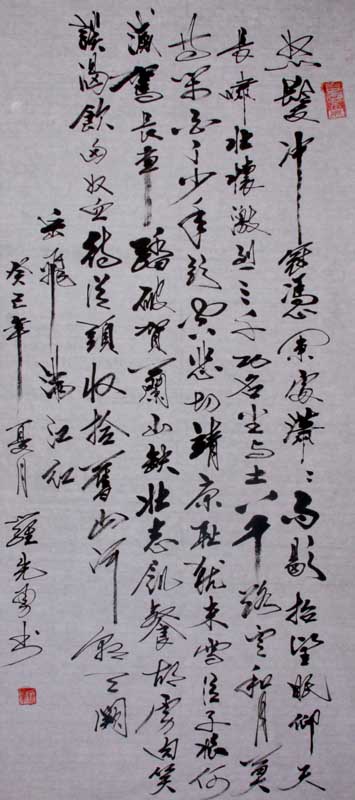 怒髮冲冠憑闌處瀟〻雨歇抬望眼仰天
長嘯壯懷激烈三十功名尘与土八千路雲和月莫
等閑白了少年頭空悲切靖康耻猶未雪臣子恨何
滅駕長車踏破賀蘭山缺壯志飢餐胡虜肉笑
談渴飲匈奴血待從頭收拾舊山河朝天闕
岳飛滿江紅
癸巳年夏月羅先書